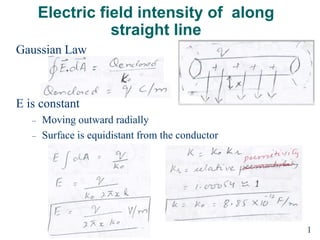 Electric field intensity of along
straight line
Gaussian Law
∮E.dA = Qenclosed / k₀
Qenclosed = q C/m
q
+ + + +
x
E is constant
– Moving outward radially
– Surface is equidistant from the conductor
E ∫ dA = q / k₀
E = q / k₀ 2πx h
E = q / 2πx k₀ V/m
K = k₀ kr
permittivity
Kr = relative
= 1.00054 ≈ 1
k = k₀ = 8.85 × 10 F/m
1